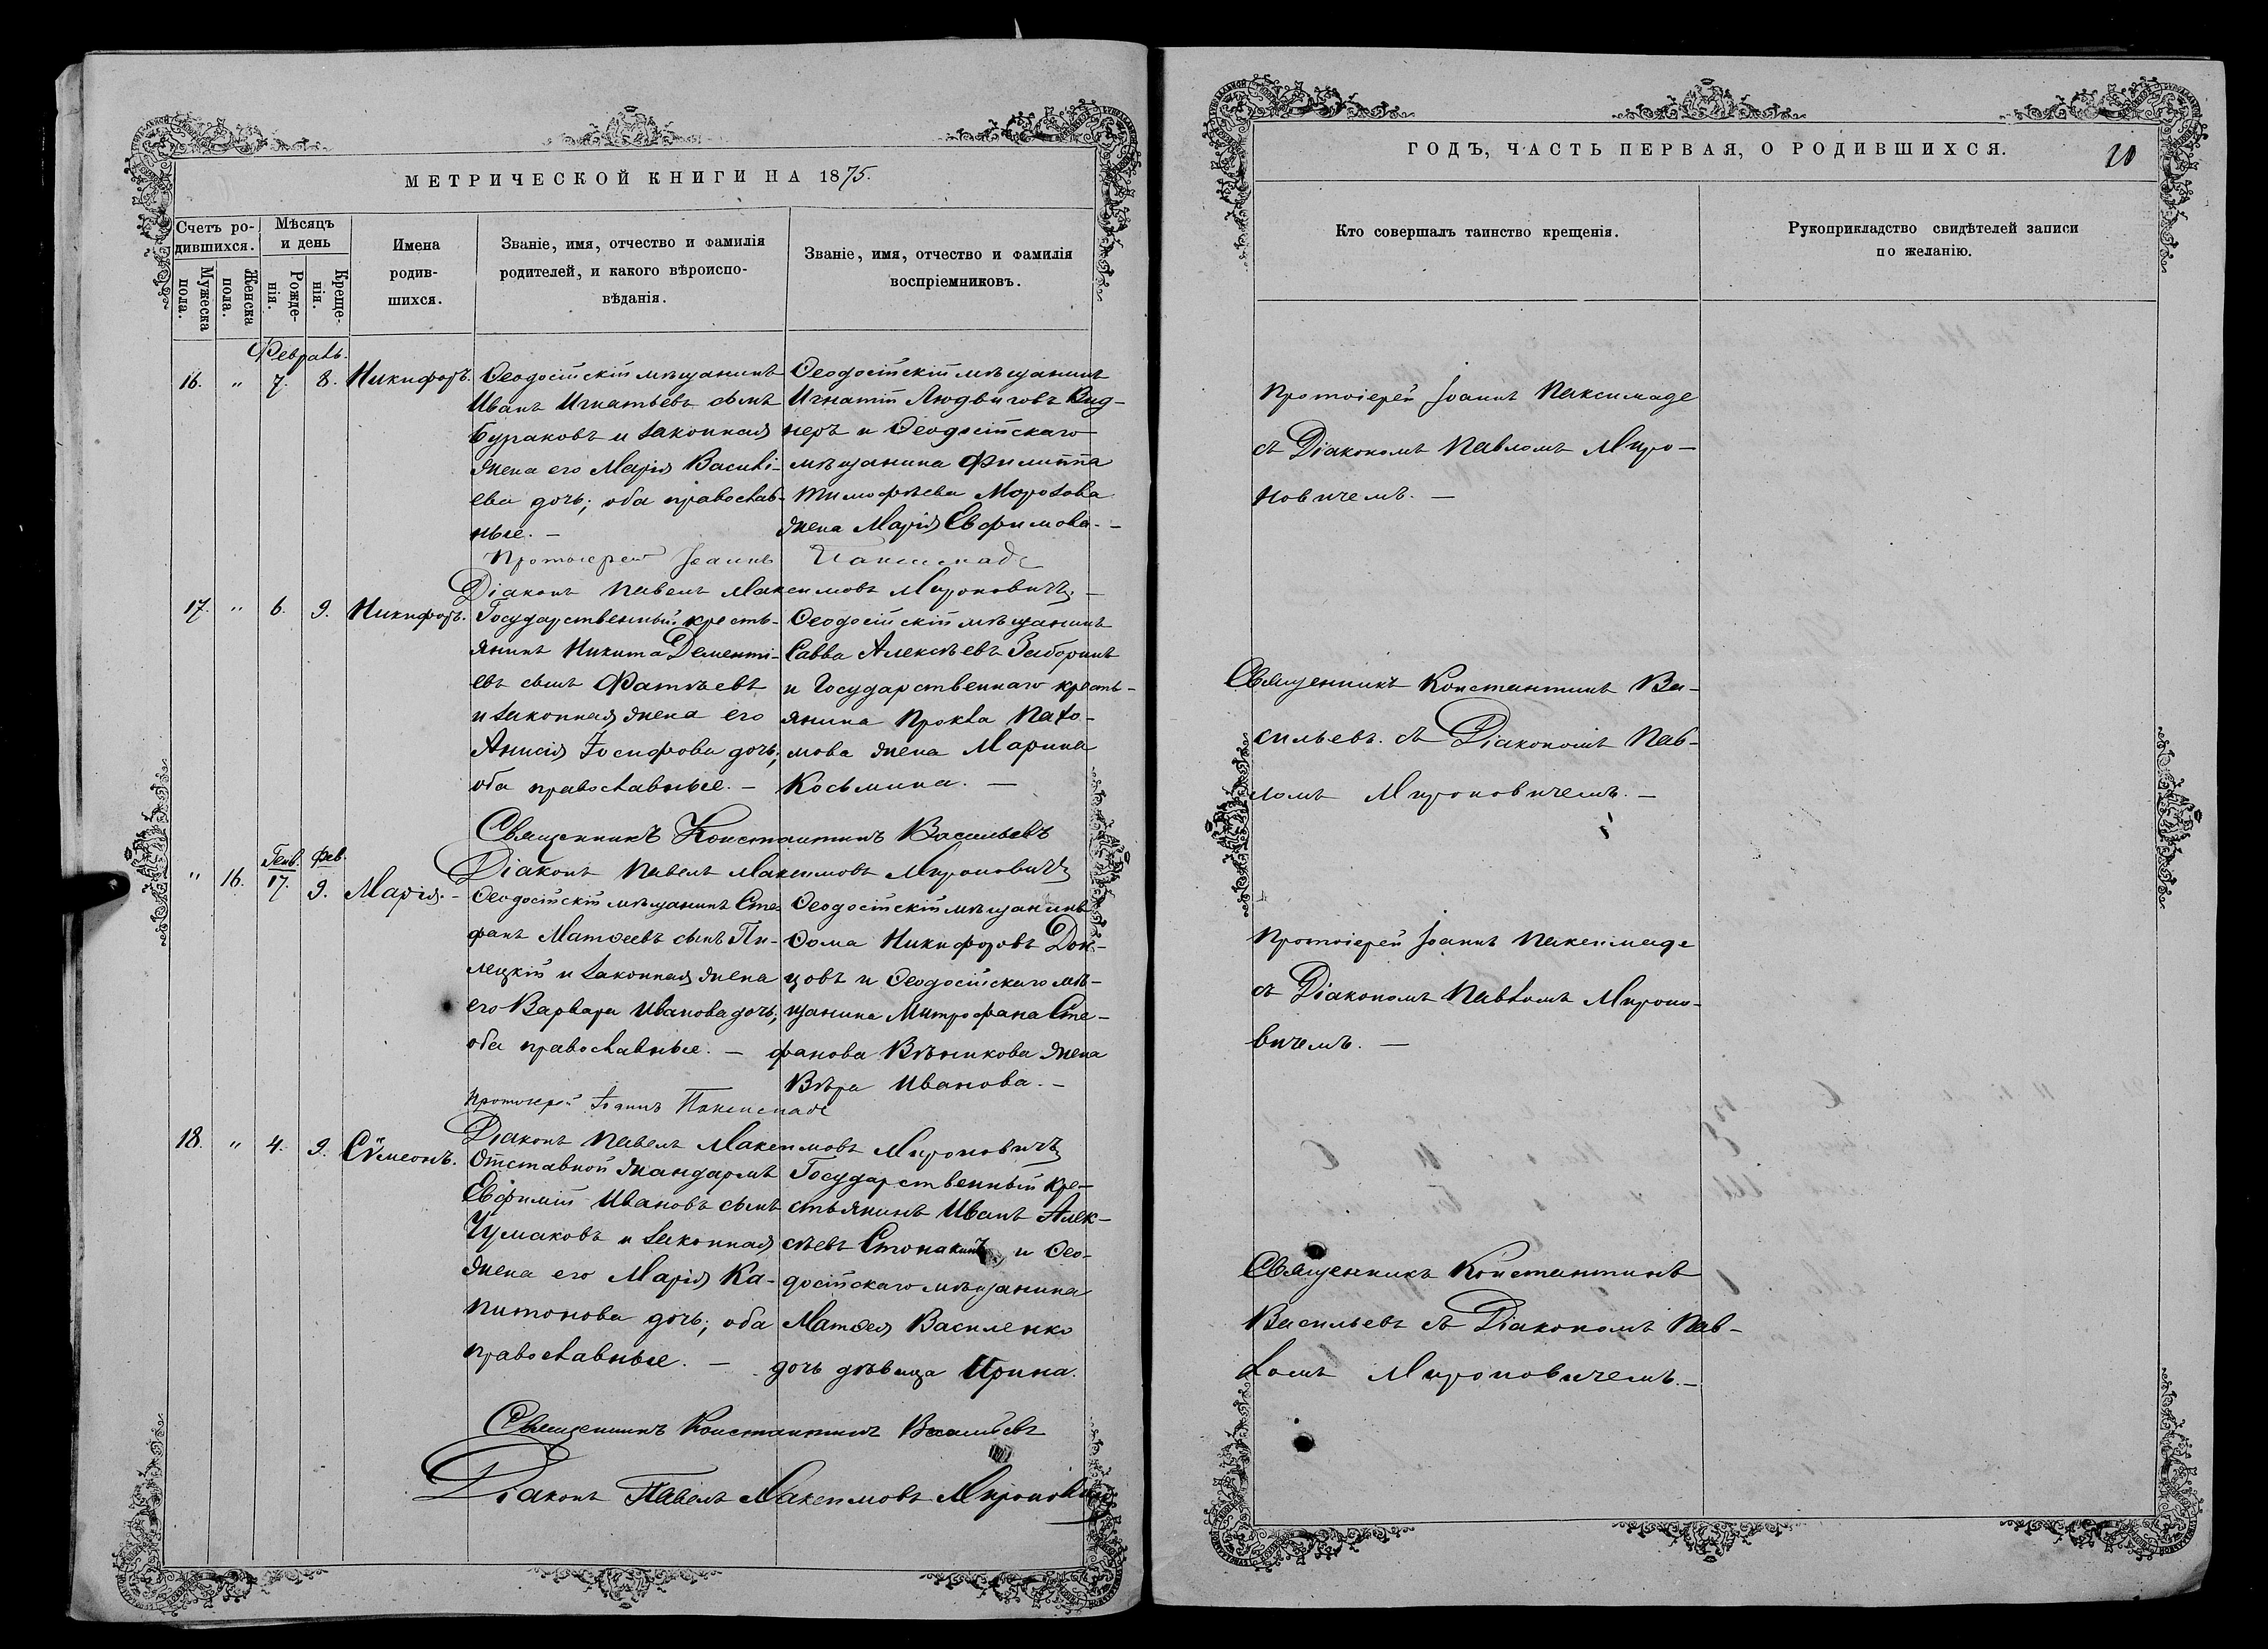 МЕТРИЧЕСКОЙ КНИГИ НА 1875.
Счетъ ро-
дившихся.
Мужеска
пола.
Женска
пола.
Мѣсяцъ
и день
Рожде-
нія.
Креще-
нія.
Имена
родив-
шихся.
Званіе, имя, отчество и фамилія
родителей, и какого вѣроиспо-
вѣданія.
Званіе, имя, отчество и фамилія
воспріемниковъ.
Февраль.
16. " 7. 8. Никифоръ.
Ѳеодосійскій мѣщанинъ
Иванъ Игнатьевъ сынъ
Бураковъ и законная
жена его Марія Василі-
ева дочь; оба православ-
ные. —
Ѳеодосійскій мѣщанинъ
Игнатій Людвиговъ Вид-
неръ и Ѳеодосійскаго
мѣщанина Филиппа
Тимофѣева Морозова
жена Марія Евфимова. —
Протоіерей Іоаннъ Паксимаде
Діаконъ Павелъ Максимовъ Мироновичъ. —
17. " 6. 9. Никифоръ.
Государственный кресть-
янинъ Никита Дементі-
евъ сынъ Фатѣевъ
и законная жена его
Анисія Іосифова дочь;
оба православные. —
Ѳеодосійскій мѣщанинъ
Савва Алексѣевъ Заборинъ
и Государственнаго кресть-
янина Прокла Пахо-
мова жена Марина
Косьмина. —
Священникъ Константинъ Васильевъ
Діаконъ Павелъ Максимовъ Мироновичъ
" 16. Генв. 17. Фев. 9. Марія. —
Ѳеодосійскій мѣщанинъ Сте-
фанъ Матѳеевъ сынъ Пи-
лецкій и законная жена
его Варвара Иванова дочь;
оба православные. —
Ѳеодосійскій мѣщанинъ
Ѳома Никифоровъ Дон-
цовъ и Ѳеодосійскаго мѣ-
щанина Митрофана Сте-
фанова Вѣникова жена
Вѣра Иванова. —
Протоіерей Іоаннъ Паксимаде
Діаконъ Павелъ Максимовъ Мироновичъ
18. " 4. 9. Сѵмеонъ.
Отставной жандармъ
Евфимій Ивановъ сынъ
Чумаковъ и законная
жена его Марія Ка-
питонова дочь; оба
православные. —
Государственный кре-
стьянинъ Иванъ Алек-
сѣевъ Стопакинъ и Ѳео-
досійскаго мѣщанина
Матѳея Василенко
дочь дѣвица Ирина.
Священникъ Константинъ Васильевъ
Діаконъ Павелъ Максимовъ Мироновичъ
ГОДЪ, ЧАСТЬ ПЕРВАЯ, О РОДИВШИХСЯ.
20
Кто совершалъ таинство крещенія.
Рукоприкладство свидѣтелей записи
по желанію.
Протоіерей Іоаннъ Паксимаде
съ Діакономъ Павломъ Миро-
новичемъ. —
Священникъ Константинъ Ва-
сильевъ. съ Діакономъ Пав-
ломъ Мироновичемъ. —
Протоіерей Іоаннъ Паксимаде
съ Діакономъ Павломъ Мироно-
вичемъ. —
Священникъ Константинъ
Васильевъ съ Діакономъ Пав-
ломъ Мироновичемъ. —